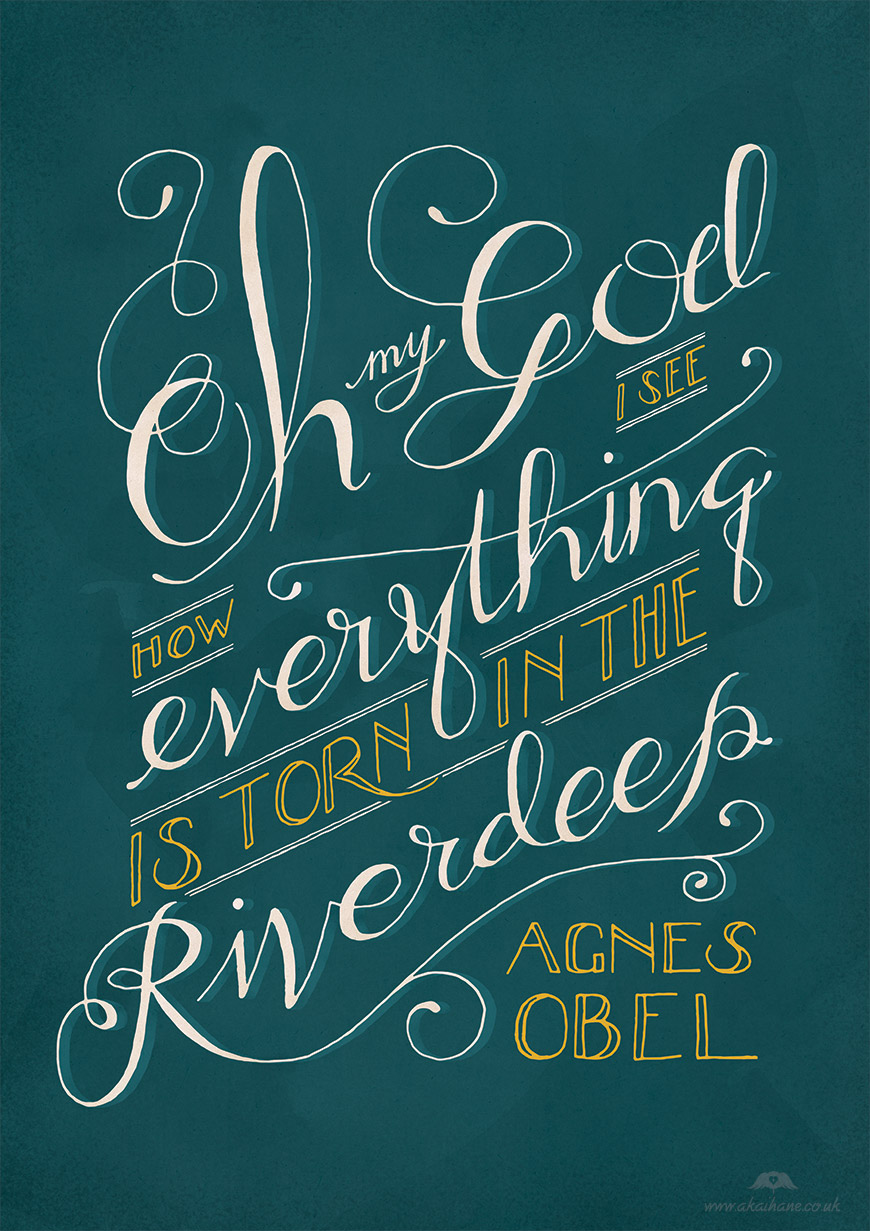 Oh my God
I SEE
HOW everything
IS TORN IN THE
Riverdeep
AGNES
OBEL
www.akaihane.co.uk